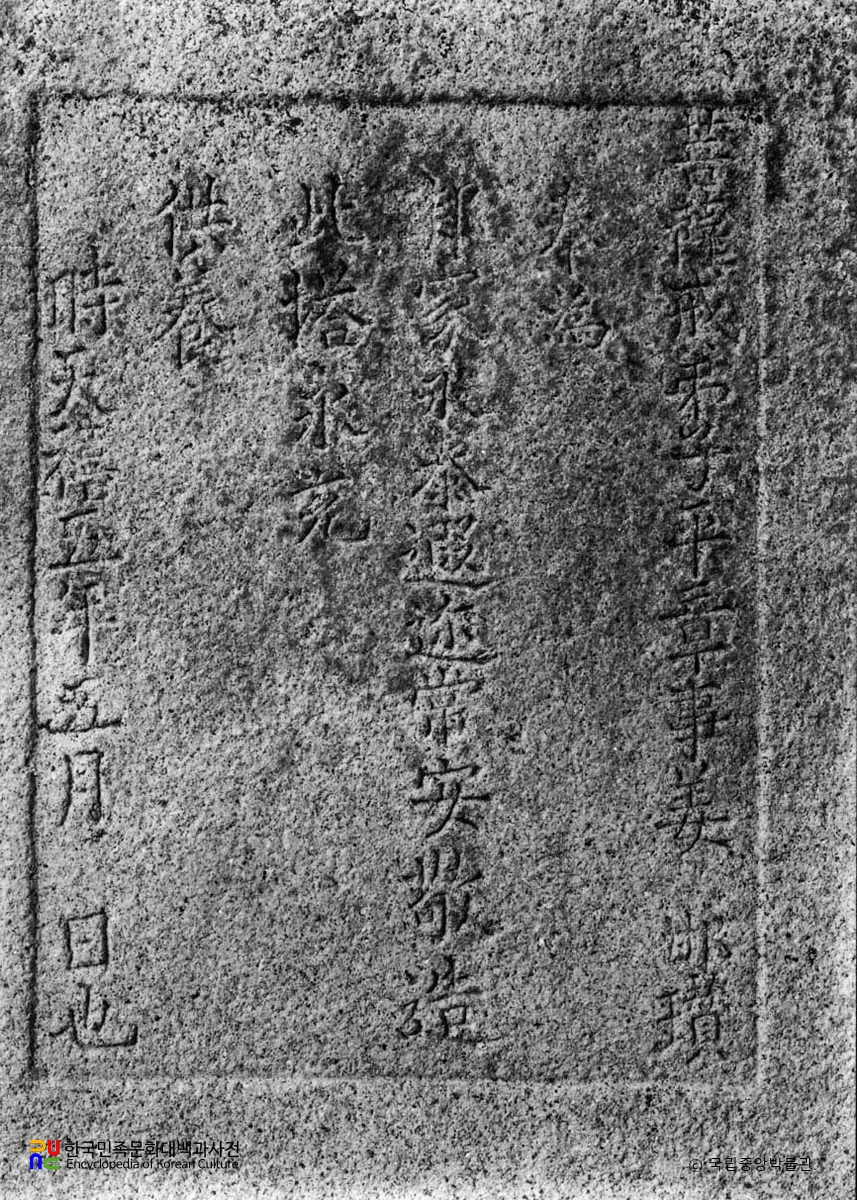 菩薩戒弟子平章事姜 邯瓚
奉為
邦家永泰遐邇常安敬造
此塔永充
供養
時天禧五年五月 日也
한국민족문화대백과사전
Encyclopedia of Korean Culture
© 국립중앙박물관